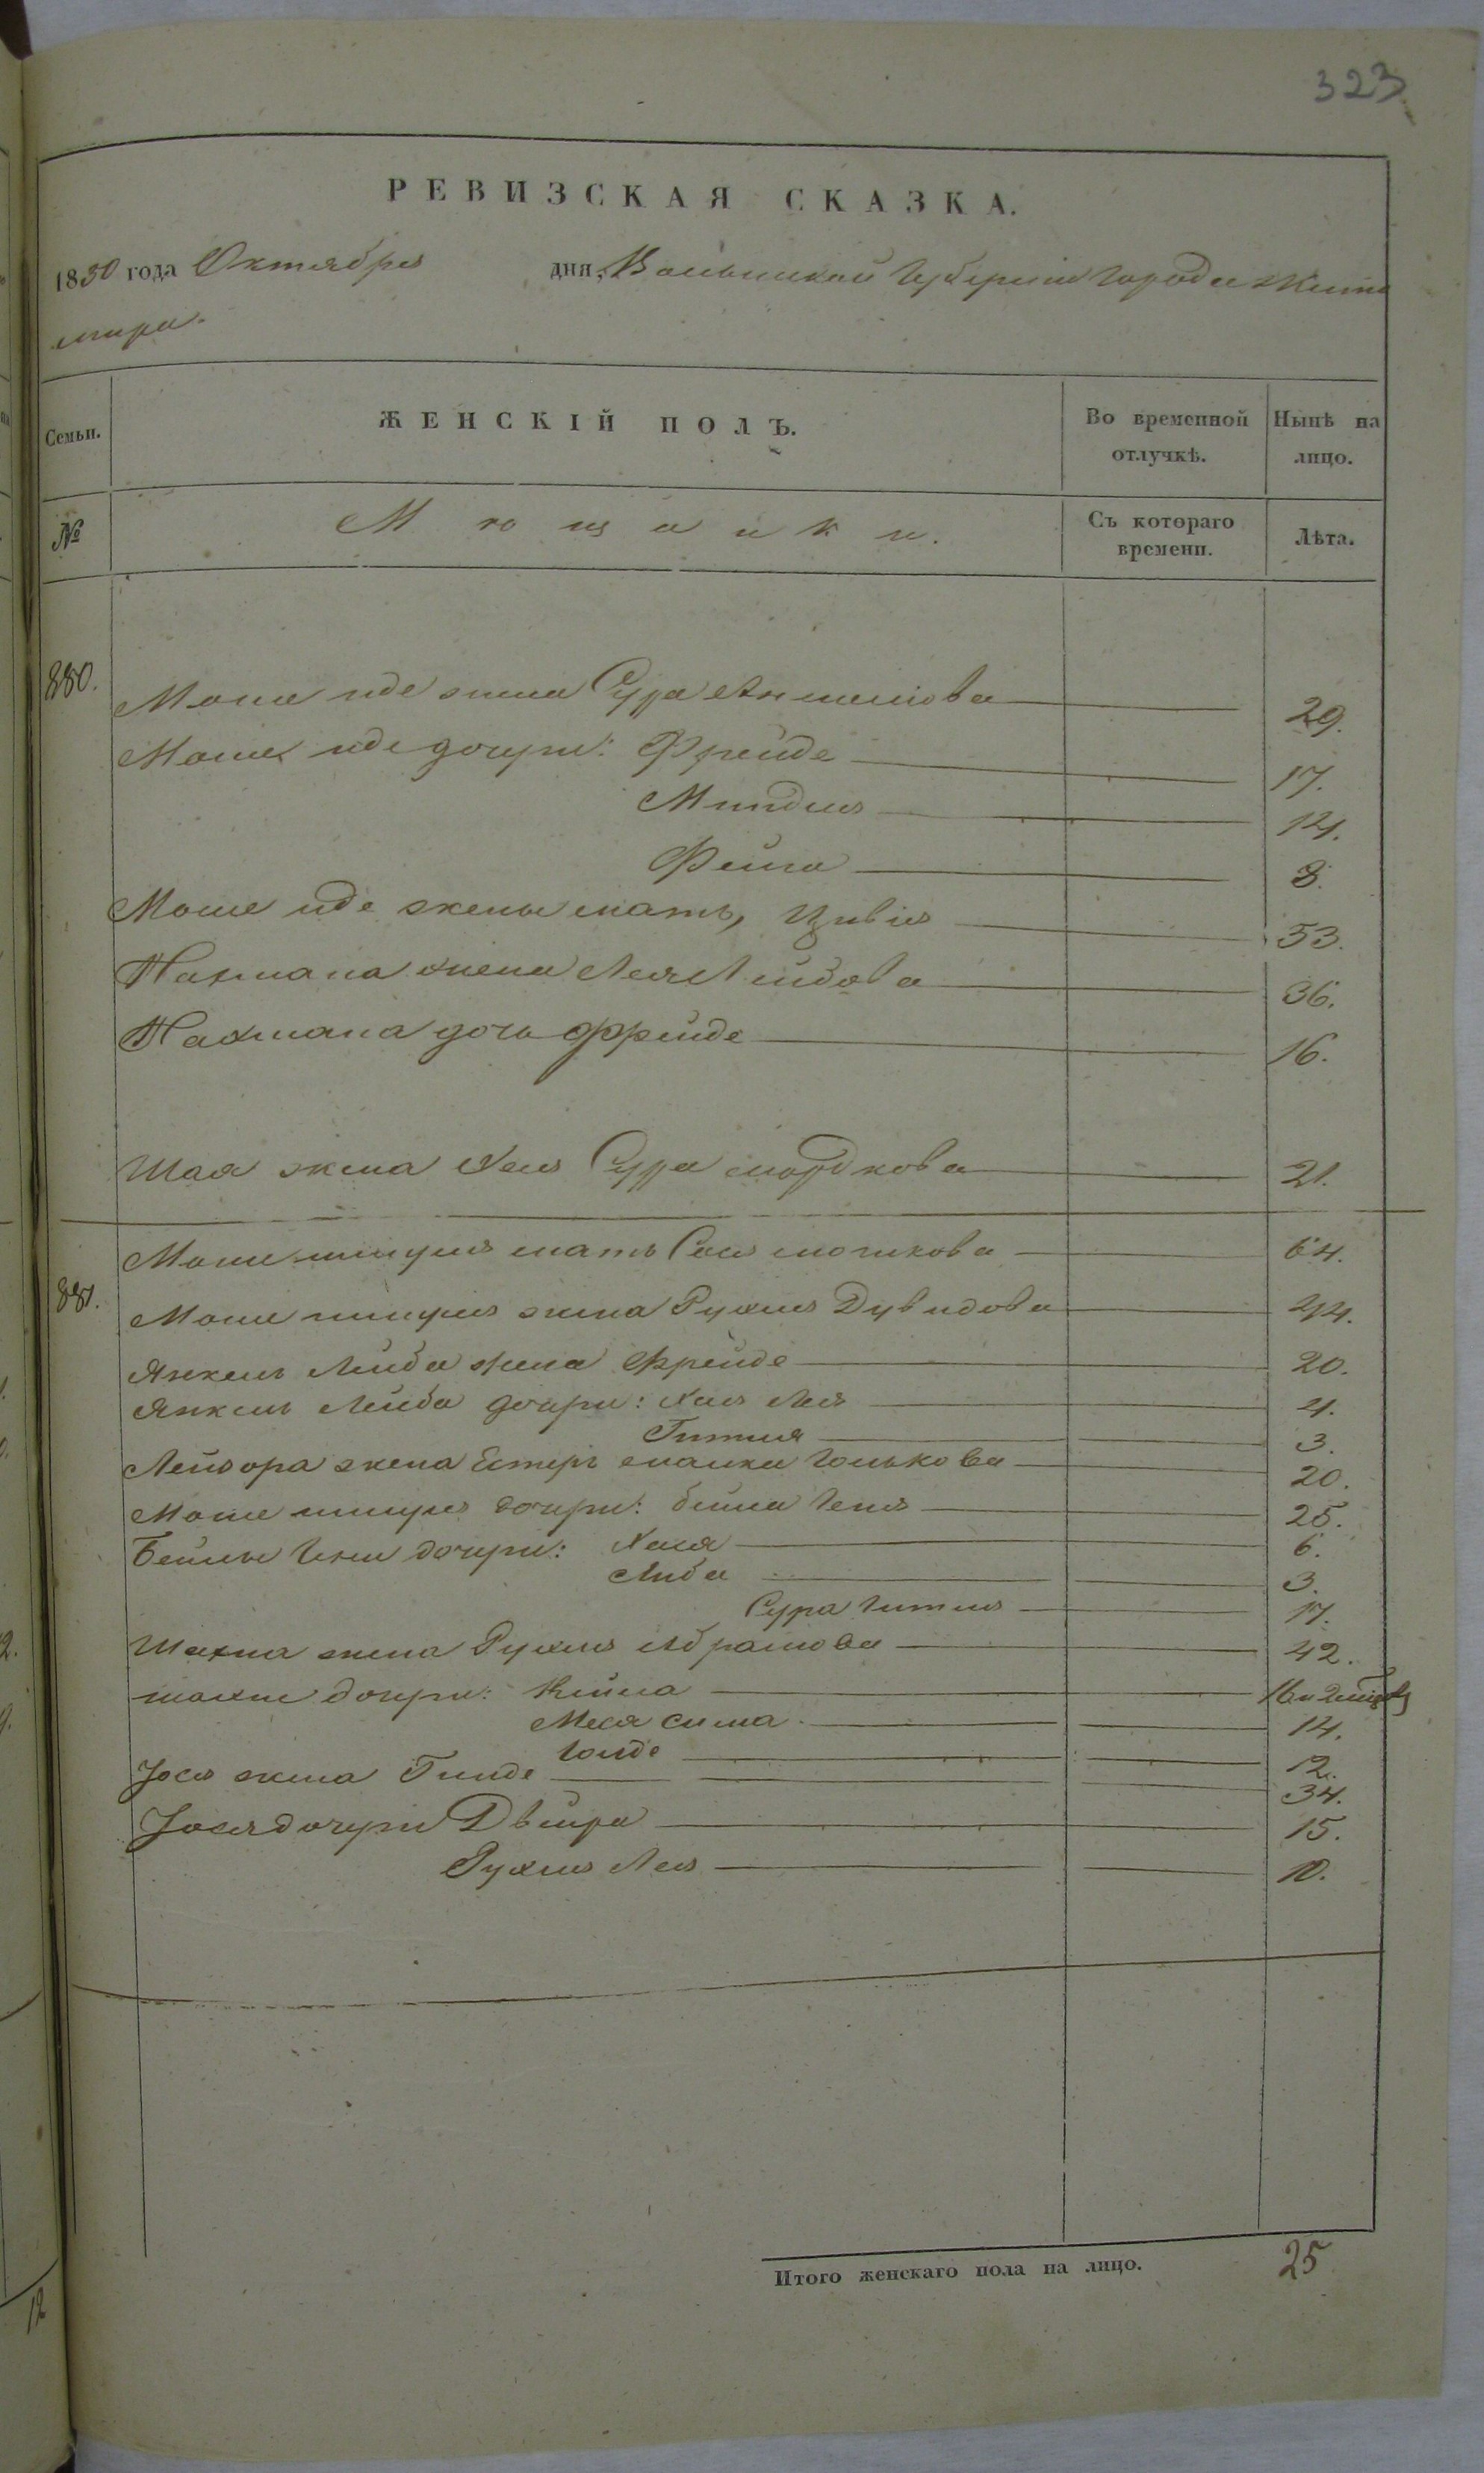 323
РЕВИЗСКАЯ СКАЗКА.
1850 года Октября дня, Волынской Губернiи Города Жито
мира.
Семьи. ЖЕНСКІЙ ПОЛЪ. Во временной отлучкѣ. Нынѣ на лицо.
№ Мѣщанки. Съ котораго времени. Лѣта.
880.
Моше иде жена Сура 29.
Моше иде дочери: Фрейде 17.
Миндля 14.
Фейга 8.
Моше иде жены мать, Цивiя 53.
Нахмана жена Лея Лейбова 36.
Нахмана дочь Фрейде 16.
Шая жена Хая Сура мордкова 21.
881.
Моше мать Сося мошкова 64.
Моше жена Рухля Дувидова 44.
Янкель Лейба жена Фрейде 20.
Янкель Лейба дочери: Хая Лея 4.
Гитля 3.
Лейзора жена Естеръ малка 20.
Моше дочери: бейла Геня 25.
Бейлы Гени дочери: Хася 6.
Либа 3.
Сура Гитля 17.
Шахна жена Рухля Абрамова 42.
шахне дочери: 16 и 2
Меся сима 14.
Голде 12.
Iося жена Гинде 34.
Iося дочери Двейра 15.
Рухля Лея 10.
Итого женскаго пола на лицо. 25